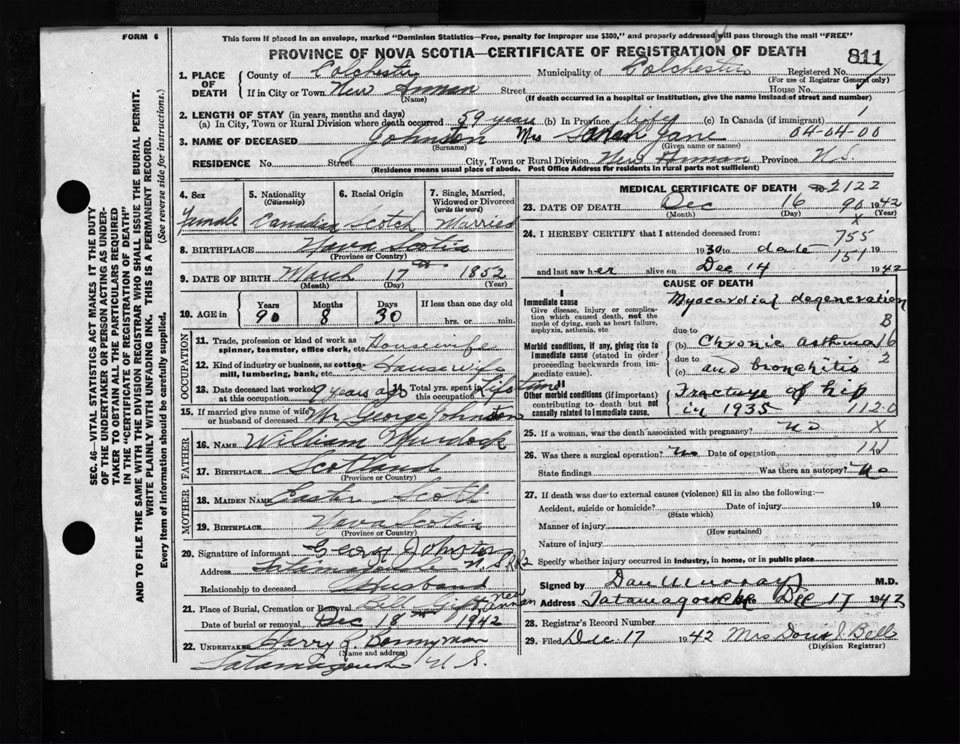 FORM 6
This form if placed in an envelope, marked "Dominion Statistics—Free, penalty for improper use $300," and properly addressed will pass through the mail "FREE"
PROVINCE OF NOVA SCOTIA—CERTIFICATE OF REGISTRATION OF DEATH
811
1. PLACE OF DEATH
County of Colchester Municipality of Colchester Registered No.
(For use of Registrar General only)
If in City or Town New Annan Street House No.
(Name) (If death occurred in a hospital or institution, give the name instead of street and number)
2. LENGTH OF STAY (in years, months and days)
(a) In City, Town or Rural Division where death occurred 59 years (b) In Province life (c) In Canada (if immigrant)
3. NAME OF DECEASED Johnston Mrs Sarah Jane 04-04-00
(Surname) (Given name or names)
RESIDENCE No. Street City, Town or Rural Division New Annan Province N.S.
(Residence means usual place of abode. Post Office Address for residents in rural parts not sufficient)
4. Sex
Female
5. Nationality (Citizenship)
Canadian
6. Racial Origin
Scotch
7. Single, Married, Widowed or Divorced (write the word)
Married
8. BIRTHPLACE Nova Scotia
(Province or Country)
9. DATE OF BIRTH March 17th 1852
(Month) (Day) (Year)
10. AGE in
Years Months Days If less than one day old
90 8 30 hrs. or min.
OCCUPATION
11. Trade, profession or kind of work as spinner, teamster, office clerk, etc. Housewife
12. Kind of industry or business, as cotton-mill, lumbering, bank, etc. Housewife
13. Date deceased last worked at this occupation 9 years ago Total yrs. spent in this occupation Life time
15. If married give name of wife or husband of deceased Mr George Johnston
FATHER
16. NAME William Murdock
17. BIRTHPLACE Scotland
(Province or Country)
MOTHER
18. MAIDEN NAME Scott
19. BIRTHPLACE Nova Scotia
(Province or Country)
20. Signature of informant George Johnston
Address Tatamagouche N.S. RR2
Relationship to deceased Husband
21. Place of Burial, Cremation or Removal New Annan
Date of burial or removal Dec 18th 1942
22. UNDERTAKER Harry R. Bonnyman
(Name and address)
Tatamagouche N.S.
MEDICAL CERTIFICATE OF DEATH 2122
23. DATE OF DEATH Dec 16 1942
(Month) (Day) (Year)
90
X
24. I HEREBY CERTIFY that I attended deceased from:
755
1930 to date 19
151
and last saw her alive on Dec 14 1942
CAUSE OF DEATH
I
Immediate cause
Give disease, injury or complication which caused death, not the mode of dying, such as heart failure, asphyxia, asthenia, etc
Myocardial degeneration
B
Morbid conditions, if any, giving rise to immediate cause (stated in order proceeding backwards from immediate cause).
due to
(b) Chronic asthma 16
due to 2
(c) and bronchitis
II
Other morbid conditions (if important) contributing to death but not causally related to immediate cause.
Fracture of hip
in 1935 112.0
25. If a woman, was the death associated with pregnancy? no X
26. Was there a surgical operation? no Date of operation 19
State findings Was there an autopsy? no
27. If death was due to external causes (violence) fill in also the following:—
Accident, suicide or homicide? Date of injury 19
(State which)
Manner of injury
(How sustained)
Nature of injury
Specify whether injury occurred in industry, in home, or in public place
Signed by Dan Murray M.D.
Address Tatamagouche Dec 17 1942
28. Registrar's Record Number
29. Filed Dec 17 1942 Mrs Doris J. Bell
(Division Registrar)
SEC. 46—VITAL STATISTICS ACT MAKES IT THE DUTY
OF THE UNDERTAKER OR PERSON ACTING AS UNDER-
TAKER TO OBTAIN ALL THE PARTICULARS REQUIRED
IN THE "CERTIFICATE OF REGISTRATION OF DEATH"
AND TO FILE THE SAME WITH THE DIVISION REGISTRAR WHO SHALL ISSUE THE BURIAL PERMIT.
WRITE PLAINLY WITH UNFADING INK. THIS IS A PERMANENT RECORD.
Every item of information should be carefully supplied. (See reverse side for instructions.)